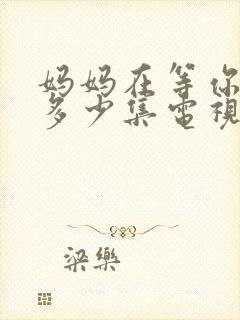 妈妈在等你
多少集電視
梁樂